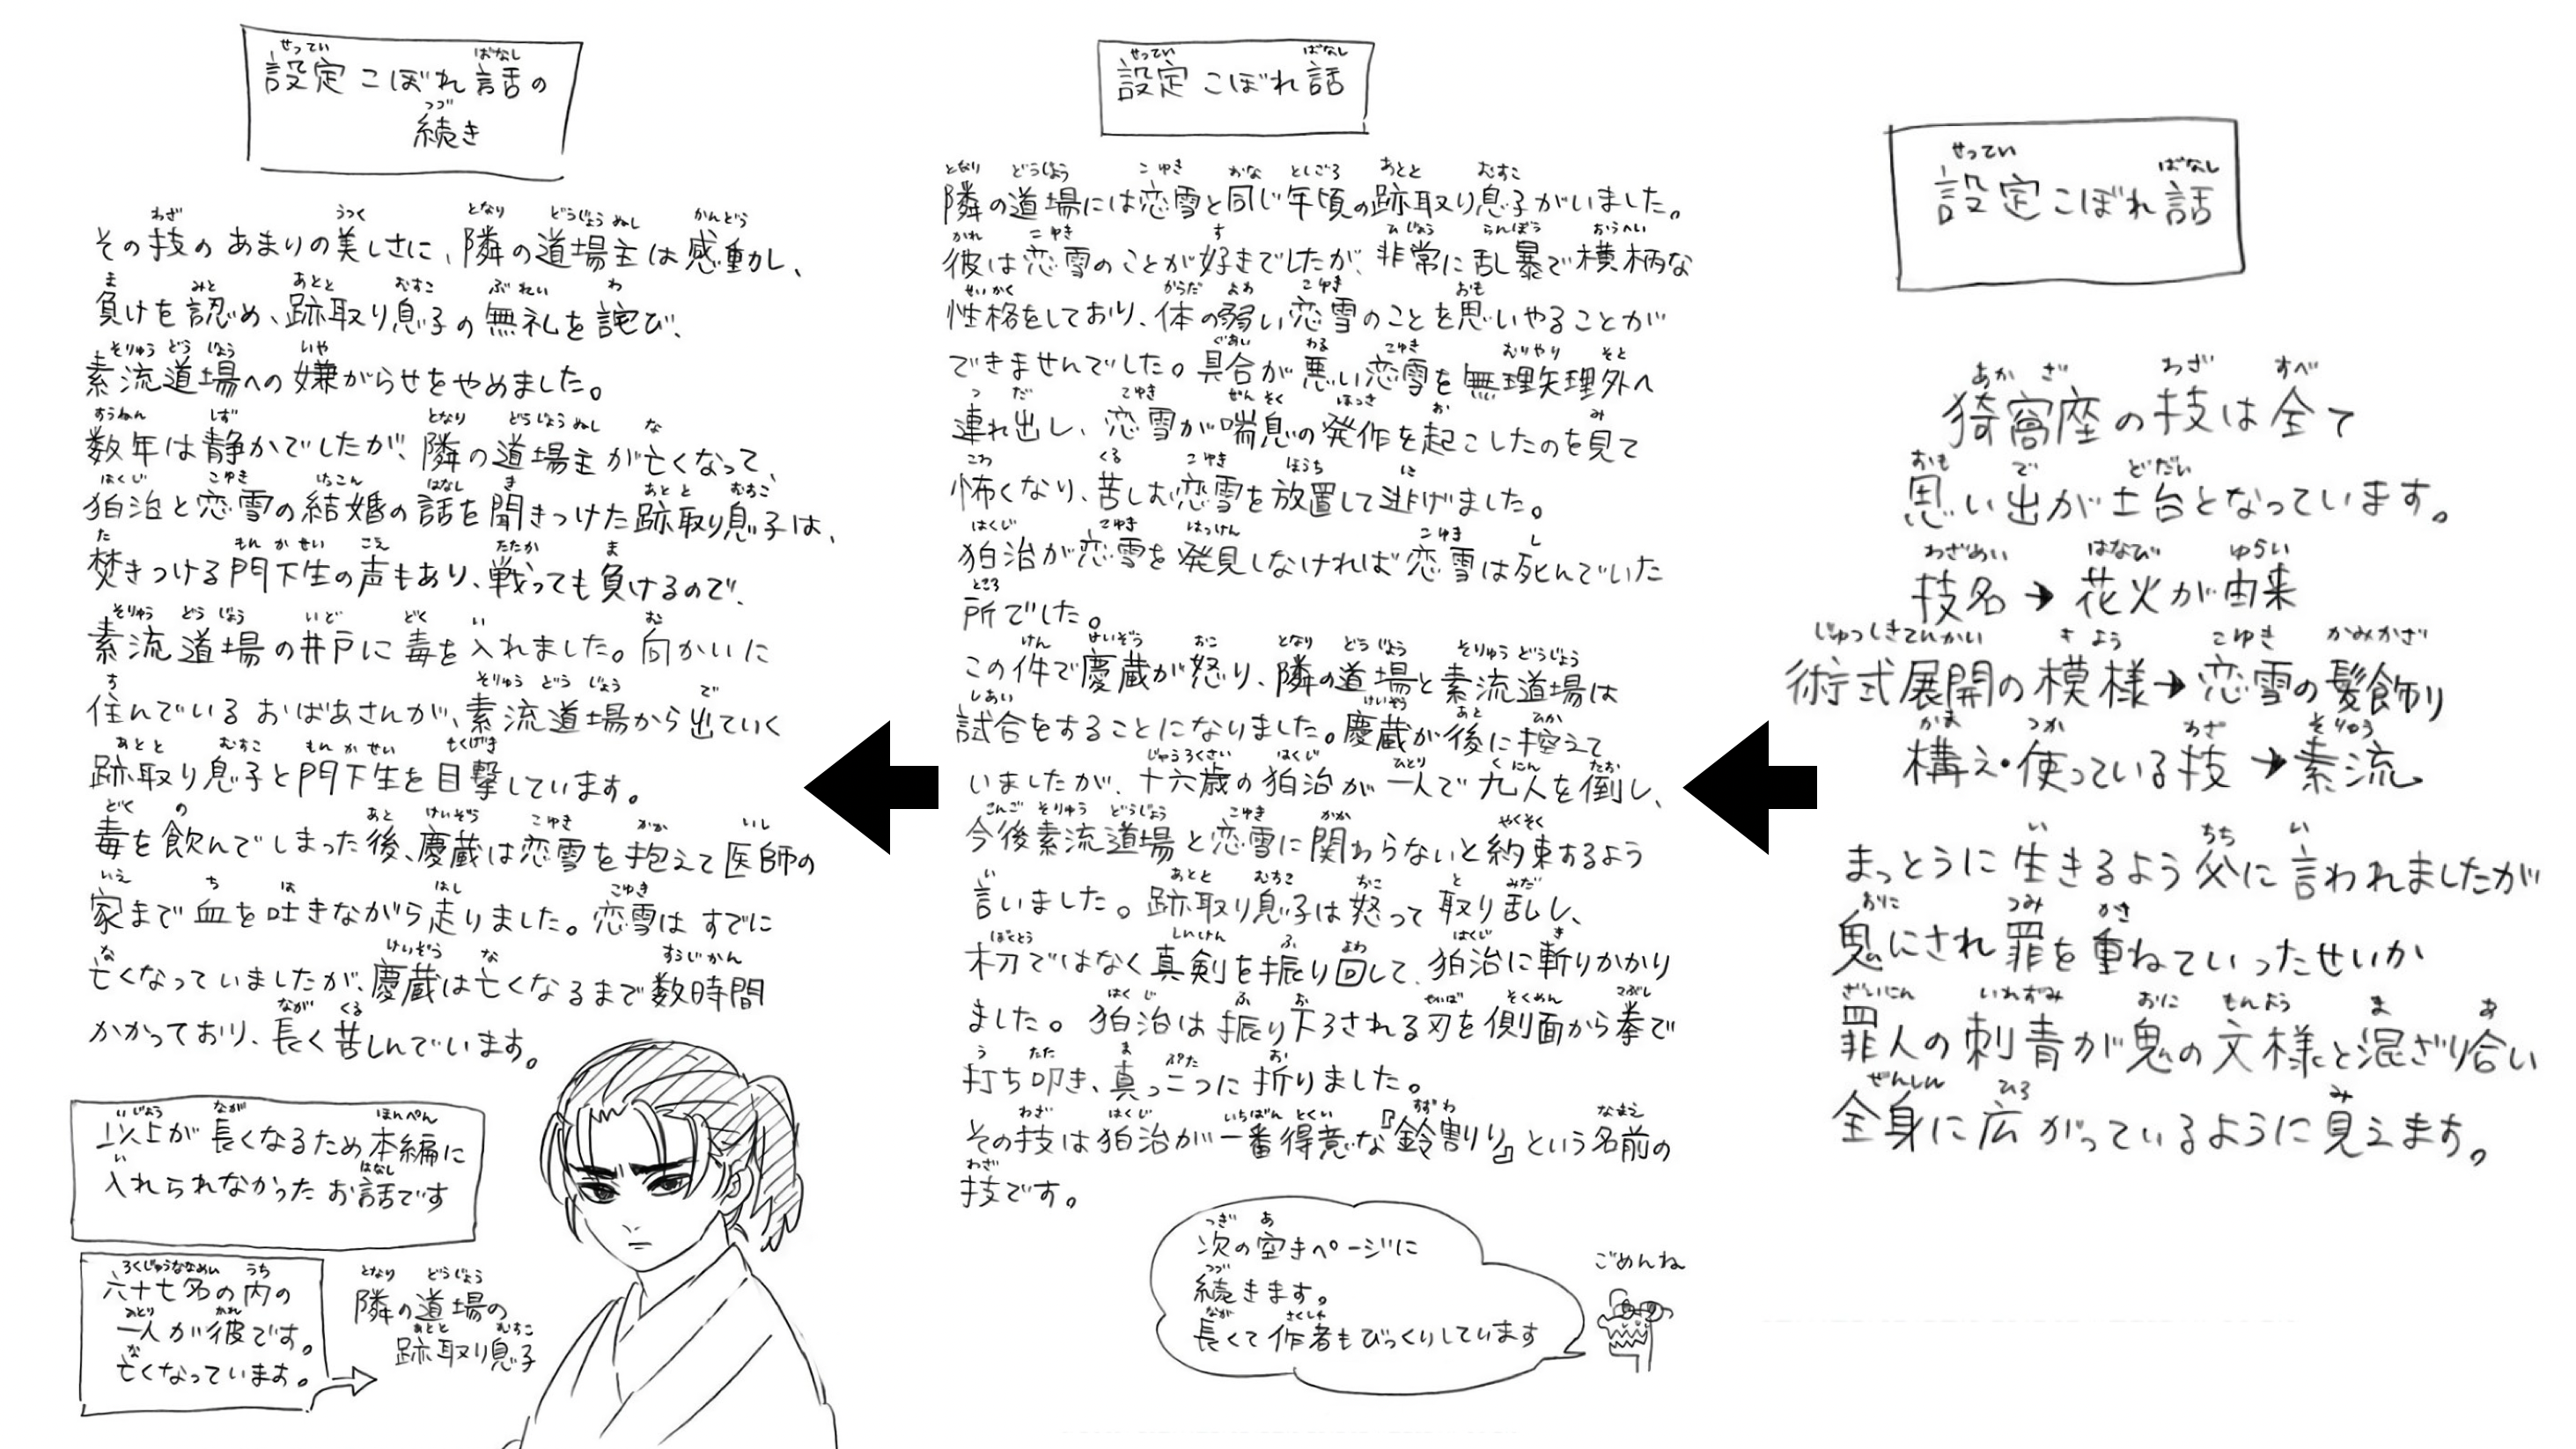 設定こぼれ話
猗窩座の技は全て
思い出が土台となっています。
技名→花火が由来
術式展開の模様→恋雪の髪飾り
構え・使っている技→素流
まっとうに生きるよう父に言われましたが
鬼にされ罪を重ねていったせいか
罪人の刺青が鬼の文様と混ざり合い
全身に広がっているように見えます。
設定こぼれ話
隣の道場には恋雪と同じ年頃の跡取り息子がいました。
彼は恋雪のことが好きでしたが、非常に乱暴で横柄な
性格をしており、体の弱い恋雪のことを思いやることが
できませんでした。具合が悪い恋雪を無理矢理外へ
連れ出し、恋雪が喘息の発作を起こしたのを見て
怖くなり、苦しむ恋雪を放置して逃げました。
狛治が恋雪を発見しなければ恋雪は死んでいた
所でした。
この件で慶蔵が怒り、隣の道場と素流道場は
試合をすることになりました。慶蔵が後に控えて
いましたが、十六歳の狛治が一人で九人を倒し、
今後素流道場と恋雪に関わらないと約束するよう
言いました。跡取り息子は怒って取り乱し、
木刀ではなく真剣を振り回して、狛治に斬りかかり
ました。狛治は振り下ろされる刃を側面から拳で
打ち叩き、真っ二つに折りました。
その技は狛治が一番得意な『鈴割り』という名前の
技です。
次の空きページに
続きます。
長くて作者もびっくりしています
ごめんね
設定こぼれ話の
続き
その技のあまりの美しさに、隣の道場主は感動し、
負けを認め、跡取り息子の無礼を詫び、
素流道場への嫌がらせをやめました。
数年は静かでしたが、隣の道場主が亡くなって、
狛治と恋雪の結婚の話を聞きつけた跡取り息子は、
焚きつける門下生の声もあり、戦っても負けるので、
素流道場の井戸に毒を入れました。向かいに
住んでいるおばあさんが、素流道場から出ていく
跡取り息子と門下生を目撃しています。
毒を飲んでしまった後、慶蔵は恋雪を抱えて医師の
家まで血を吐きながら走りました。恋雪はすでに
亡くなっていましたが、慶蔵は亡くなるまで数時間
かかっており、長く苦しんでいます。
以上が長くなるため本編に
入れられなかったお話です
六十七名の内の
一人が彼です。
亡くなっています。
隣の道場の
跡取り息子